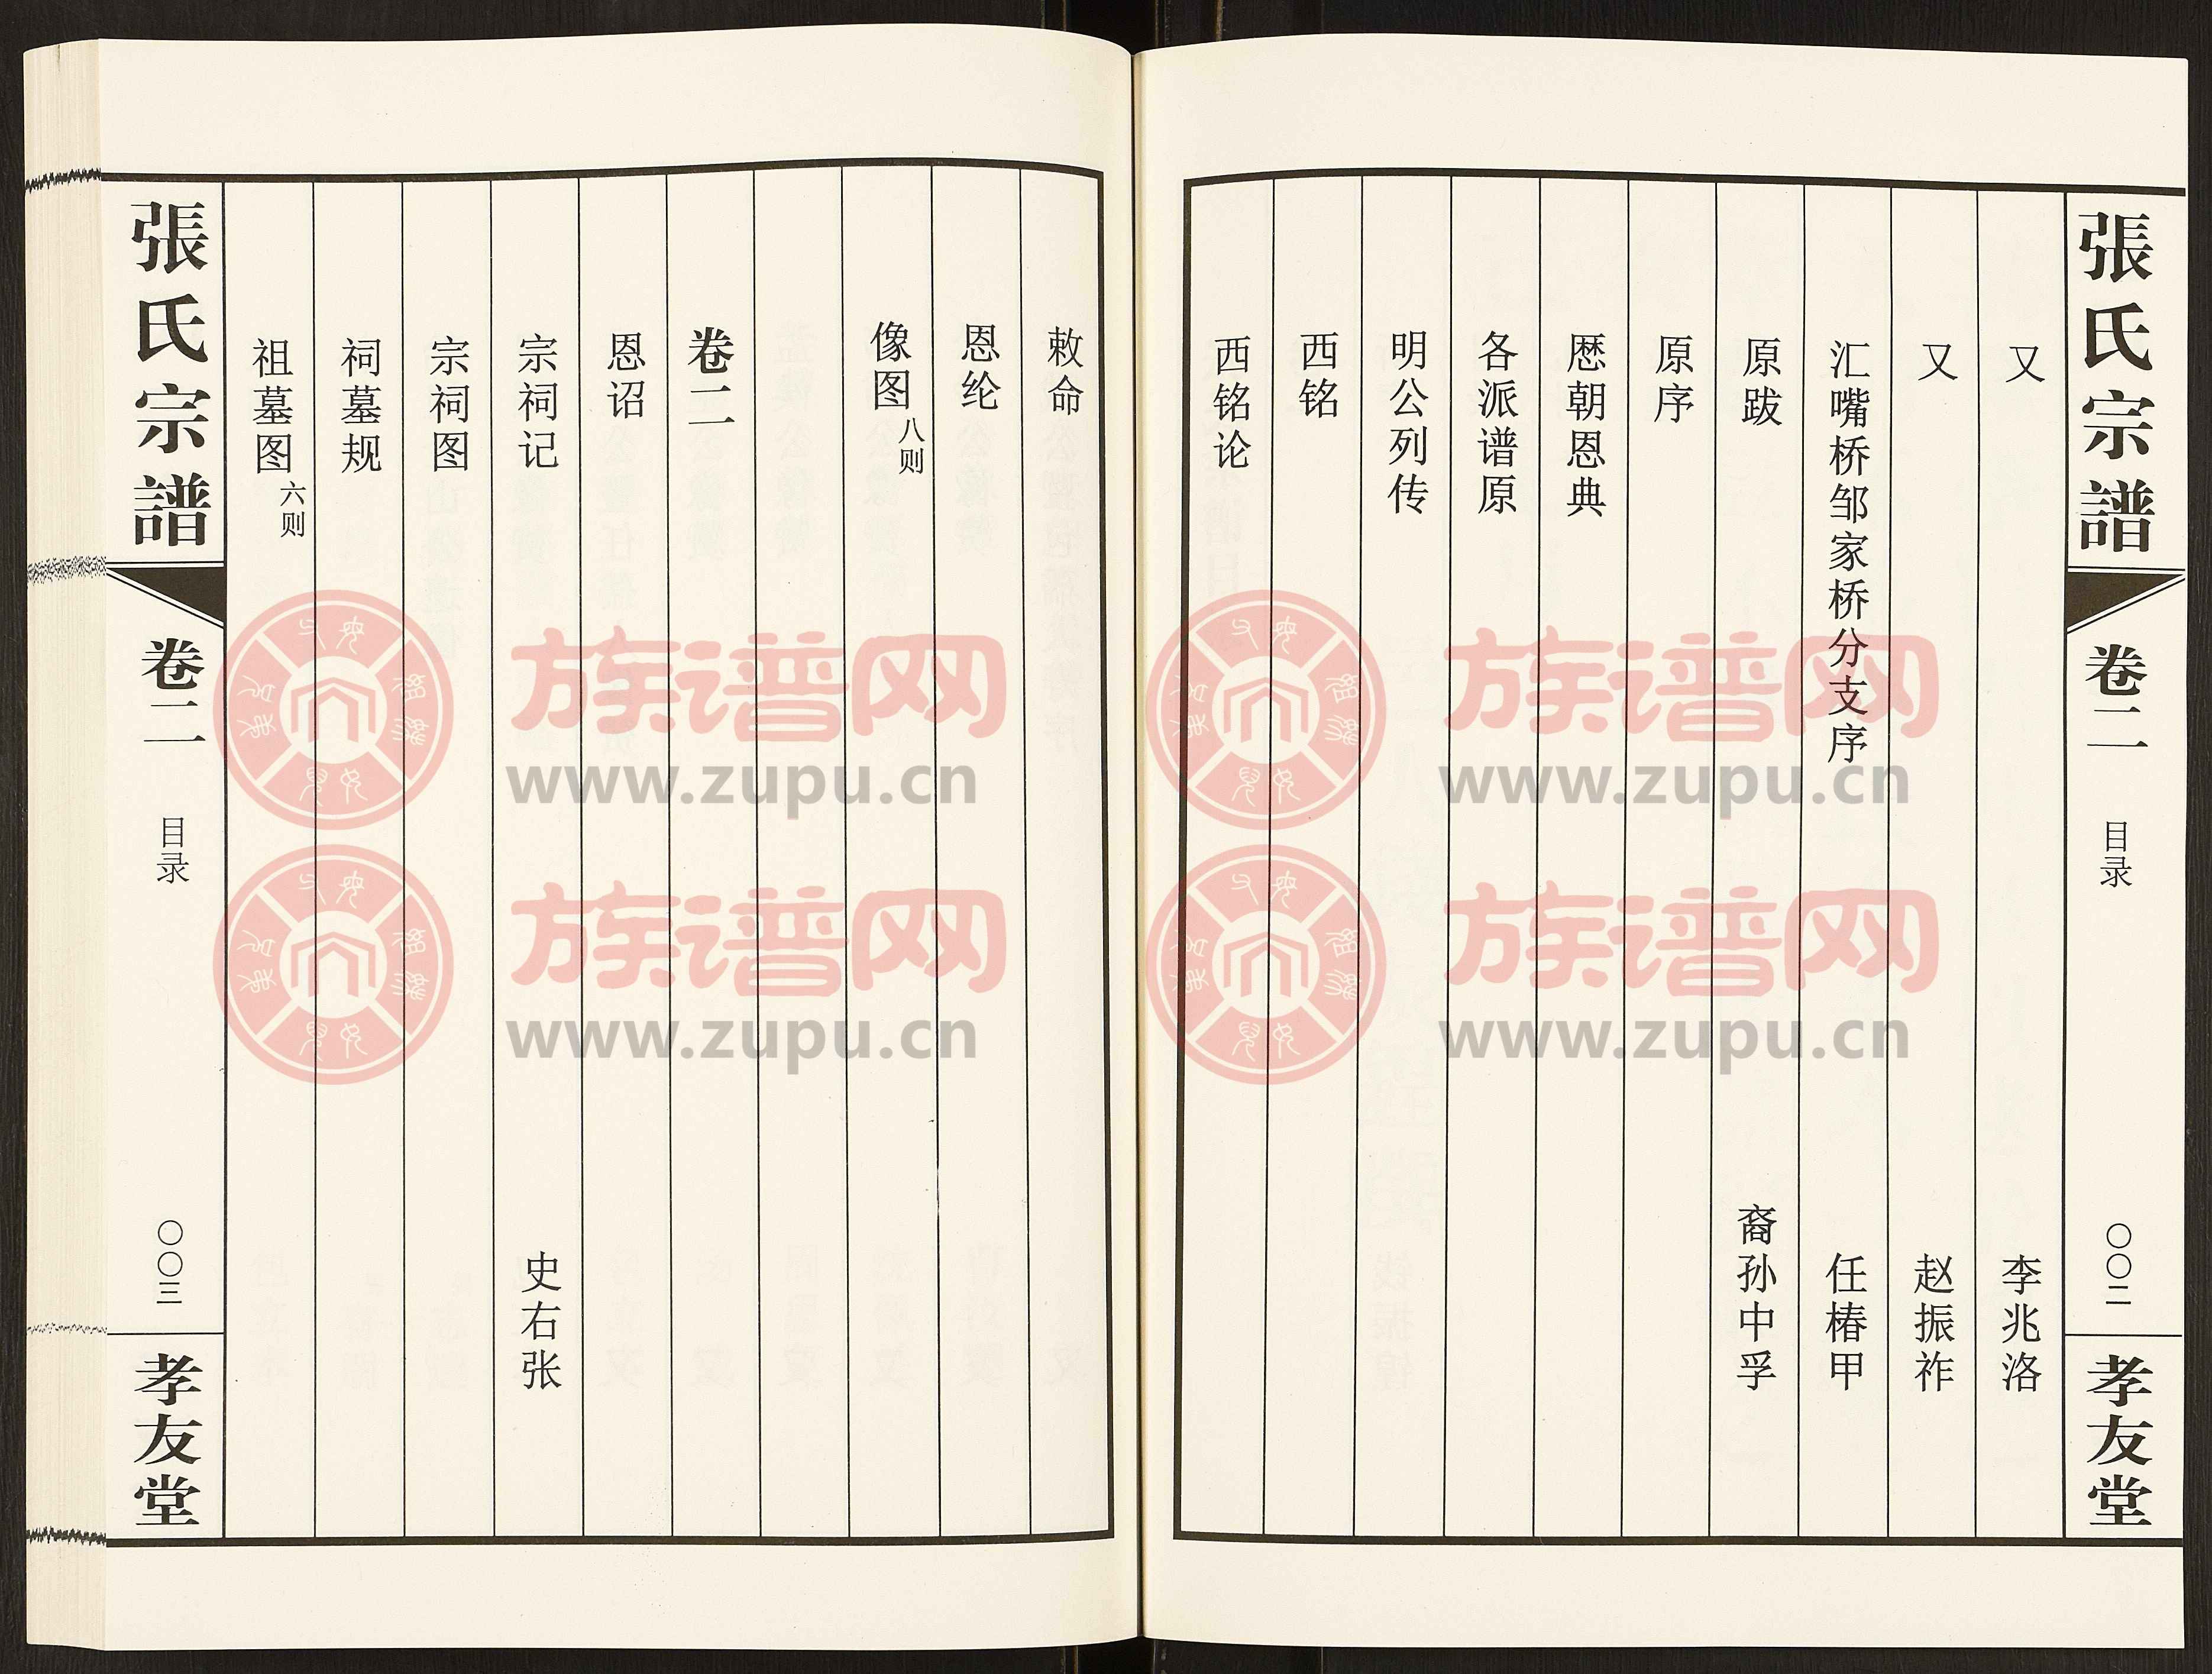 張氏宗譜
卷二
目录
〇〇二
孝友堂
又 李兆洛
又 赵振祚
汇嘴桥邹家桥分支序 任椿甲
原跋 裔孙中孚
原序
歴朝恩典
各派谱原
明公列传
西铭
西铭论
敕命
恩纶
像图八则
卷二
恩诏
宗祠记 史右张
宗祠图
祠墓规
祖墓图六则
張氏宗譜
卷二
目录
〇〇三
孝友堂
族谱网
www.zupu.cn
族谱网
www.zupu.cn
族谱网
www.zupu.cn
族谱网
www.zupu.cn